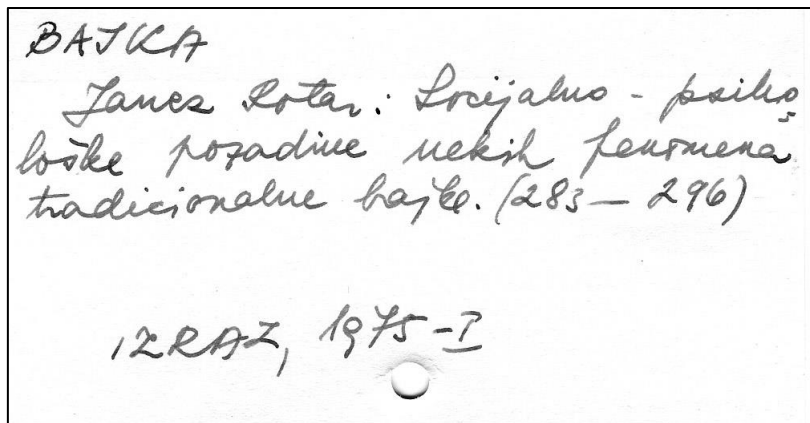 BAJKA
Janez Rotar: Socijalno - psiho
loške pozadine nekih fenomena
tradicionalne bajke. (283 - 296)
IZRAZ, 1975 - I